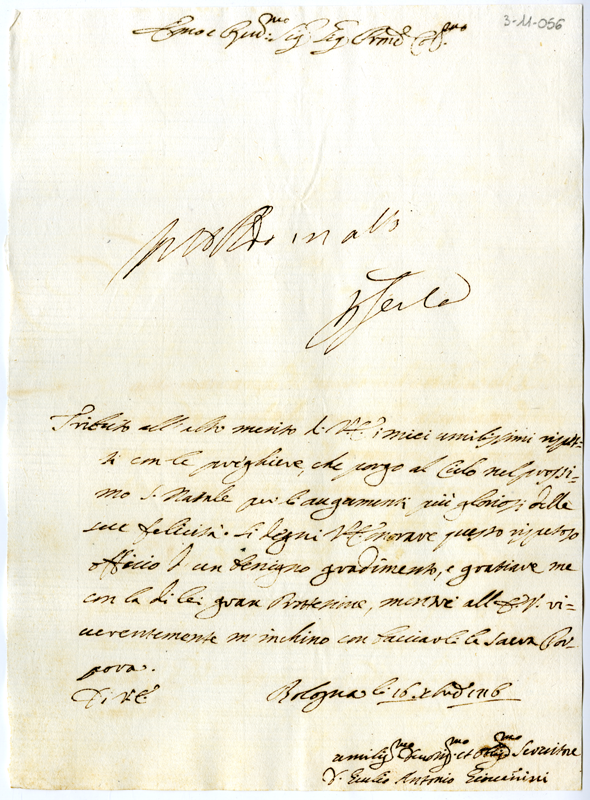 3-11-056
Emo e Rev.mo Sig.r Sig.r Pron.e Col.mo
in alb
Tributo all'alto merito di V.E. i miei umilissimi rispet-
ti con le preghiere, che porgo al Cielo nel prossi-
mo S. Natale per l'augumenti più gloriosi delle
sue felicità. Si degni V.E. onorare questo rispetoso
officio d'un benigno gradimento, e gratiare me
con la di lei gran Protezione, mentre all'E.V. ri-
uerentemente m'inchino con bacciarle la Sacra Por-
pora.
Di V.E.
Bologna li 16 Xbre 1716
umiliss.mo Deuotis.mo et Oblig.mo Seruitore
D. Antonio Giouannini